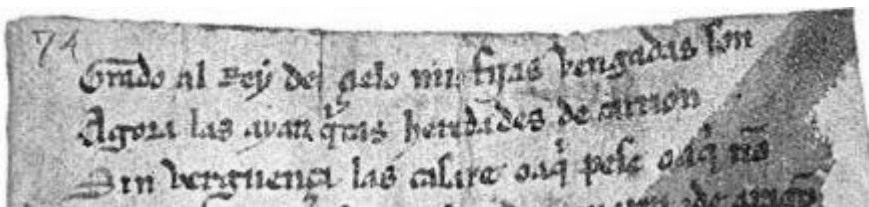 74
Grado al Rey del çielo mis fijas vengadas son
Agora las ayan quitas heredades de carrion
Sin verguença las casare o a qui pese o a qui nõ